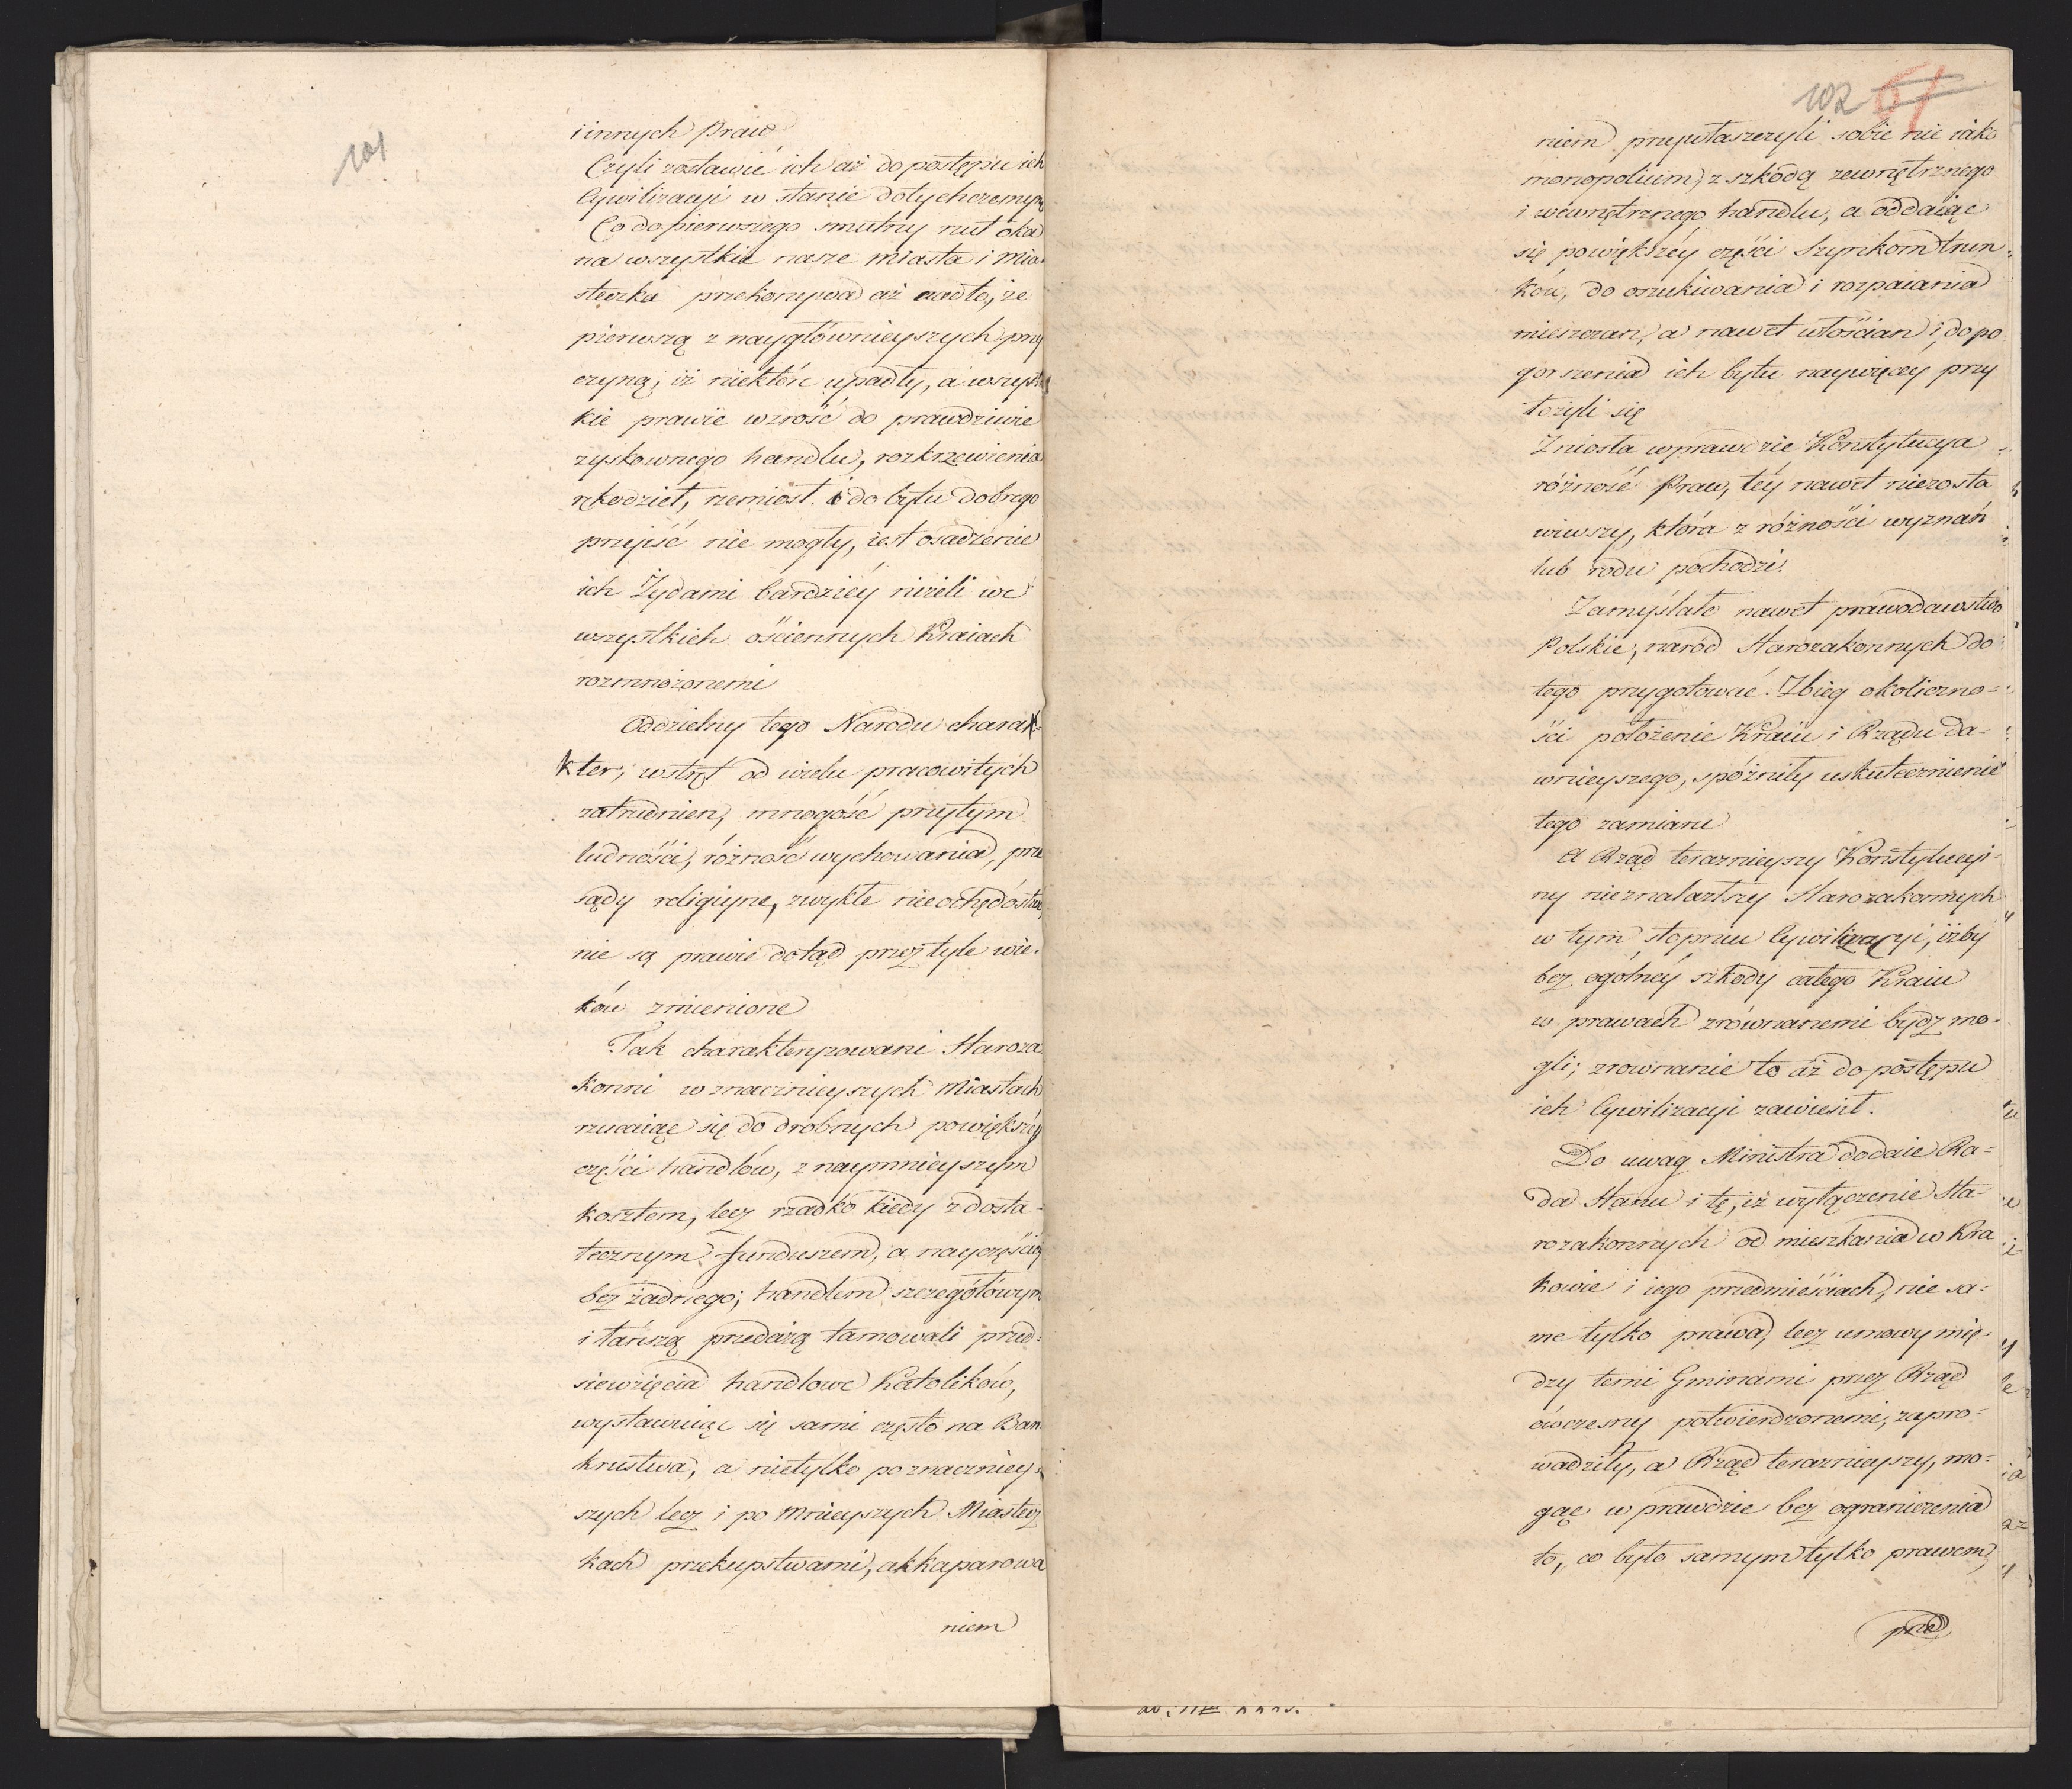 101
i innych Praw
Czyli zostawić ich aż do postępu ich
Cywilizacyi w stanie dotychczesnym
Co do pierwszego smutny rzut oka
na wszystkie nasze miasta i mia-
steczka przekonywa aż nadto, że
pierwszą z naygłównieyszych przy
czyną, iż niektóre upadły, a wszyst
kie prawie wzrość do prawdziwie
zyskownego handlu, rozkrzewienia
rękodzieł, rzemiosł i do bytu dobrego
przejść nie mogły, iest osadzenie
ich Żydami bardziéy niżeli we
wszystkich ościennych Kraiach
rozmnożonemi
Oddzielny tego Narodu charak-
kter, wstręt od wielu pracowitych
zatrudnien, mnogość przytym
ludności, różność wychowania, prze
sądy religiyne, zwykłe nieochędóstwo,
nie są prawie dotąd przez tyle wie-
ków zmienione
Tak charakteryzowani Staroza
konni w znacznieyszych Miastach
rzucaiąc się do drobnych powiększéy
części handlów, z naymnieyszym
kosztem, lecz rzadko kiedy z dosta-
tecznym funduszem, a nayczęściéy
bez żadnego; handlem szczegółowym
i tańszą przedażą tamowali przed-
siewzięcia handlowe Katolików,
wystawuiąc się sami często na Ban
kructwa, a nietylko po znaczniey-
szych lecz i po mnieyszych Miastecz
kach przekupstwami, akkaparowa
niem
102 61
niem przywłaszczyli sobie nie iako
monopolium, z szkodą zewnętrznego
i wewnętrznego handlu, a oddaiąc
się powiększéy części Szynkom trun-
ków, do oszukiwania i rozpaiania
mieszczan, a nawet włościan i do po
gorszenia ich bytu naywięcéy przy
łożyli się
Zniosła wprawdzie Konstytucya
różność Praw, téy nawet niezosta
wiwszy, która z różności wyznań
lub rodu pochodzi.
Zamyślało nawet prawodawstwo
Polskie, naród Starozakonnych do
tego przygotować. Zbieg okoliczno-
ści położenie Kraiu i Rządu da-
wnieyszego, spóźniły uskutecznienie
tego zamiaru
A Rząd teraznieyszy Konstytucyi-
ny nieznalazłszy Starozakonnych
w tym stopniu Cywilizacyi, iżby
bez ogolnéy szkody całego Kraiu
w prawach zrównanemi bydź mo-
gli; zrownanie to aż do postępu
ich Cywilizacyi zawiesił.
Do uwag Ministra dodaie Ra-
da Stanu i tę, iż wyłączenie Sta-
rozakonnych od mieszkania w Kra
kowie i iego przedmieściach, nie sa-
me tylko prawa, lecz umowy mię-
dzy temi Gminami przez Rząd
ówczesny potwierdzonemi, zapro-
wadziły, a Rząd teraznieyszy, mo-
gąc w prawdzie bez ograniczenia
to, co było samym tylko prawem,
prze